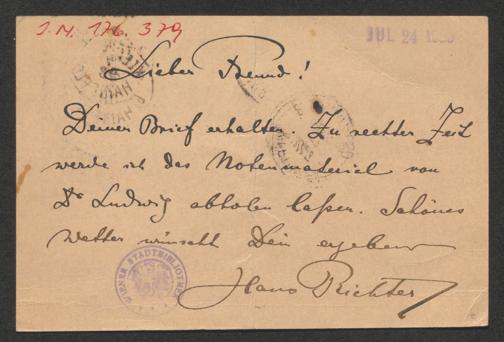 I.N. 176.379
JUL 24
Lieber Freund!
Deinen Brief erhalten. Zu rechter Zeit
werde ich das Notenmaterial von
Dr Ludwig abholen laßen. Schönes
Wetter wünscht Dein ergebener
Hans Richter
WIENER STADTBIBLIOTHEK